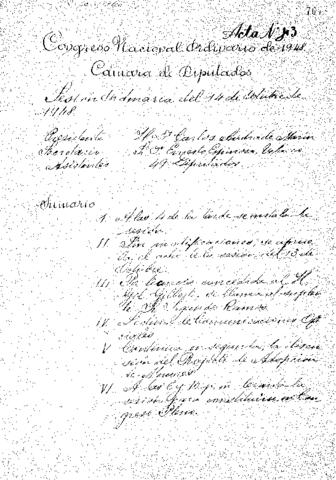 Acta Nº 43
Congreso Nacional Ordinario de 1948.
Cámara de Diputados
Sesión Ordinaria del 14 de Octubre de
1948.
Presidente H. Dr. Carlos Andrade Marín
Secretario Dr. Ernesto Espinosa Velasco
Asistentes 49 Diputados.
Sumario
I. A las 4 de la tarde se instala la
sesión.
II. Sin modificaciones, se aprueba
el acta de la sesión del 13 de
Octubre.
III. Por licencia concedida al H.
Gil Gilbert, se llama al suplen
te, H. Segundo Ramos.
IV. Lectura de Comunicaciones Ofi
ciales
V. Continúa en segunda, la discu
sión del Proyecto de Adopción
de Menores.
VI. A las 6 y 10 p.m. levanta la
sesión para constituirse en Con
greso Pleno.